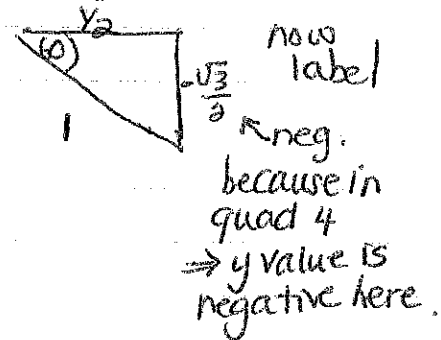 1/2
60
now
label
1
-√3/2
↖ neg.
because in
quad 4
⇒ y value is
negative here.